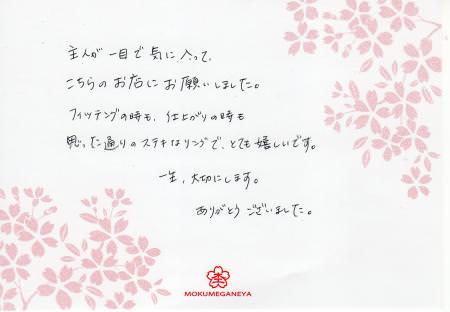 主人が一目で気に入って、
こちらのお店にお願いしました。
フィッテングの時も、仕上がりの時も
思った通りのステキなリングで、とても嬉しいです。
一生、大切にします。
ありがとうございました。
MOKUMEGANEYA